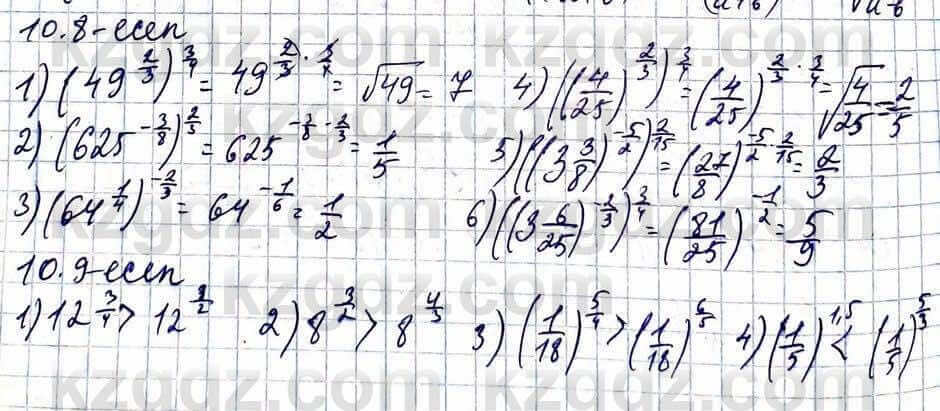 10.8-есеп
1) (49^(2/3))^(3/4) = 49^(2/3 · 3/4) = √49 = 7   4) ((4/25)^(2/3))^(3/4) = (4/25)^(2/3 · 3/4) = √(4/25) = 2/5
2) (625^(-3/8))^(2/3) = 625^(-3/8 · 2/3) = 1/5   5) ((3 3/8)^(-5/2))^(2/15) = (27/8)^(-5/2 · 2/15) = 2/3
3) (64^(1/4))^(-2/3) = 64^(-1/6) = 1/2   6) ((3 6/25)^(-2/3))^(3/4) = (81/25)^(-1/2) = 5/9
10.9-есеп
1) 12^(3/4) > 12^(1/2)   2) 8^(3/2) > 8^(4/3)   3) (1/18)^(5/4) > (1/18)^(6/5)   4) (1/5)^(1,5) < (1/5)^(5/3)